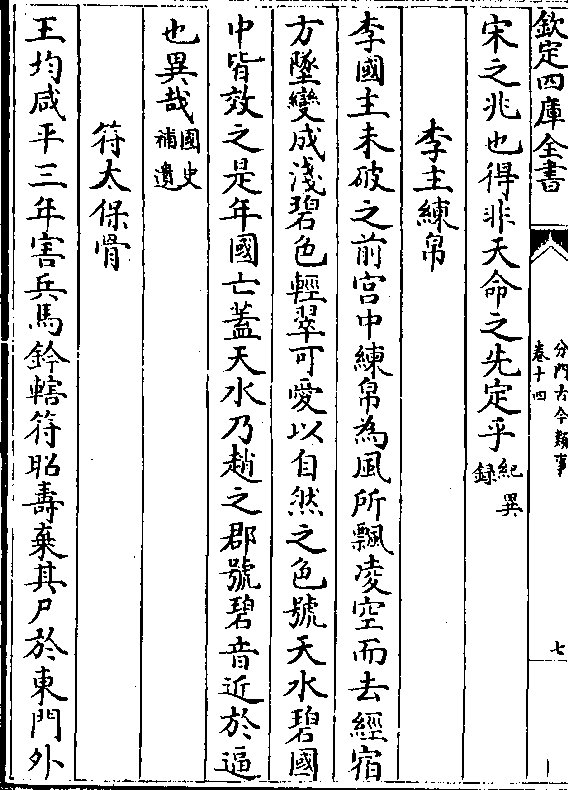 欽定四庫全書
分門古今類事
卷十四
七
宋之兆也得非天命之先定乎紀異錄
李主練帛
李國主未破之前宮中練帛為風所飄凌空而去經宿
方墜變成淺碧色輕翠可愛以自然之色號天水碧國
中皆效之是年國亡蓋天水乃趙之郡號碧音近於逼
也異哉國史補遺
符太保骨
王均咸平三年害兵馬鈐轄符昭壽棄其尸於東門外